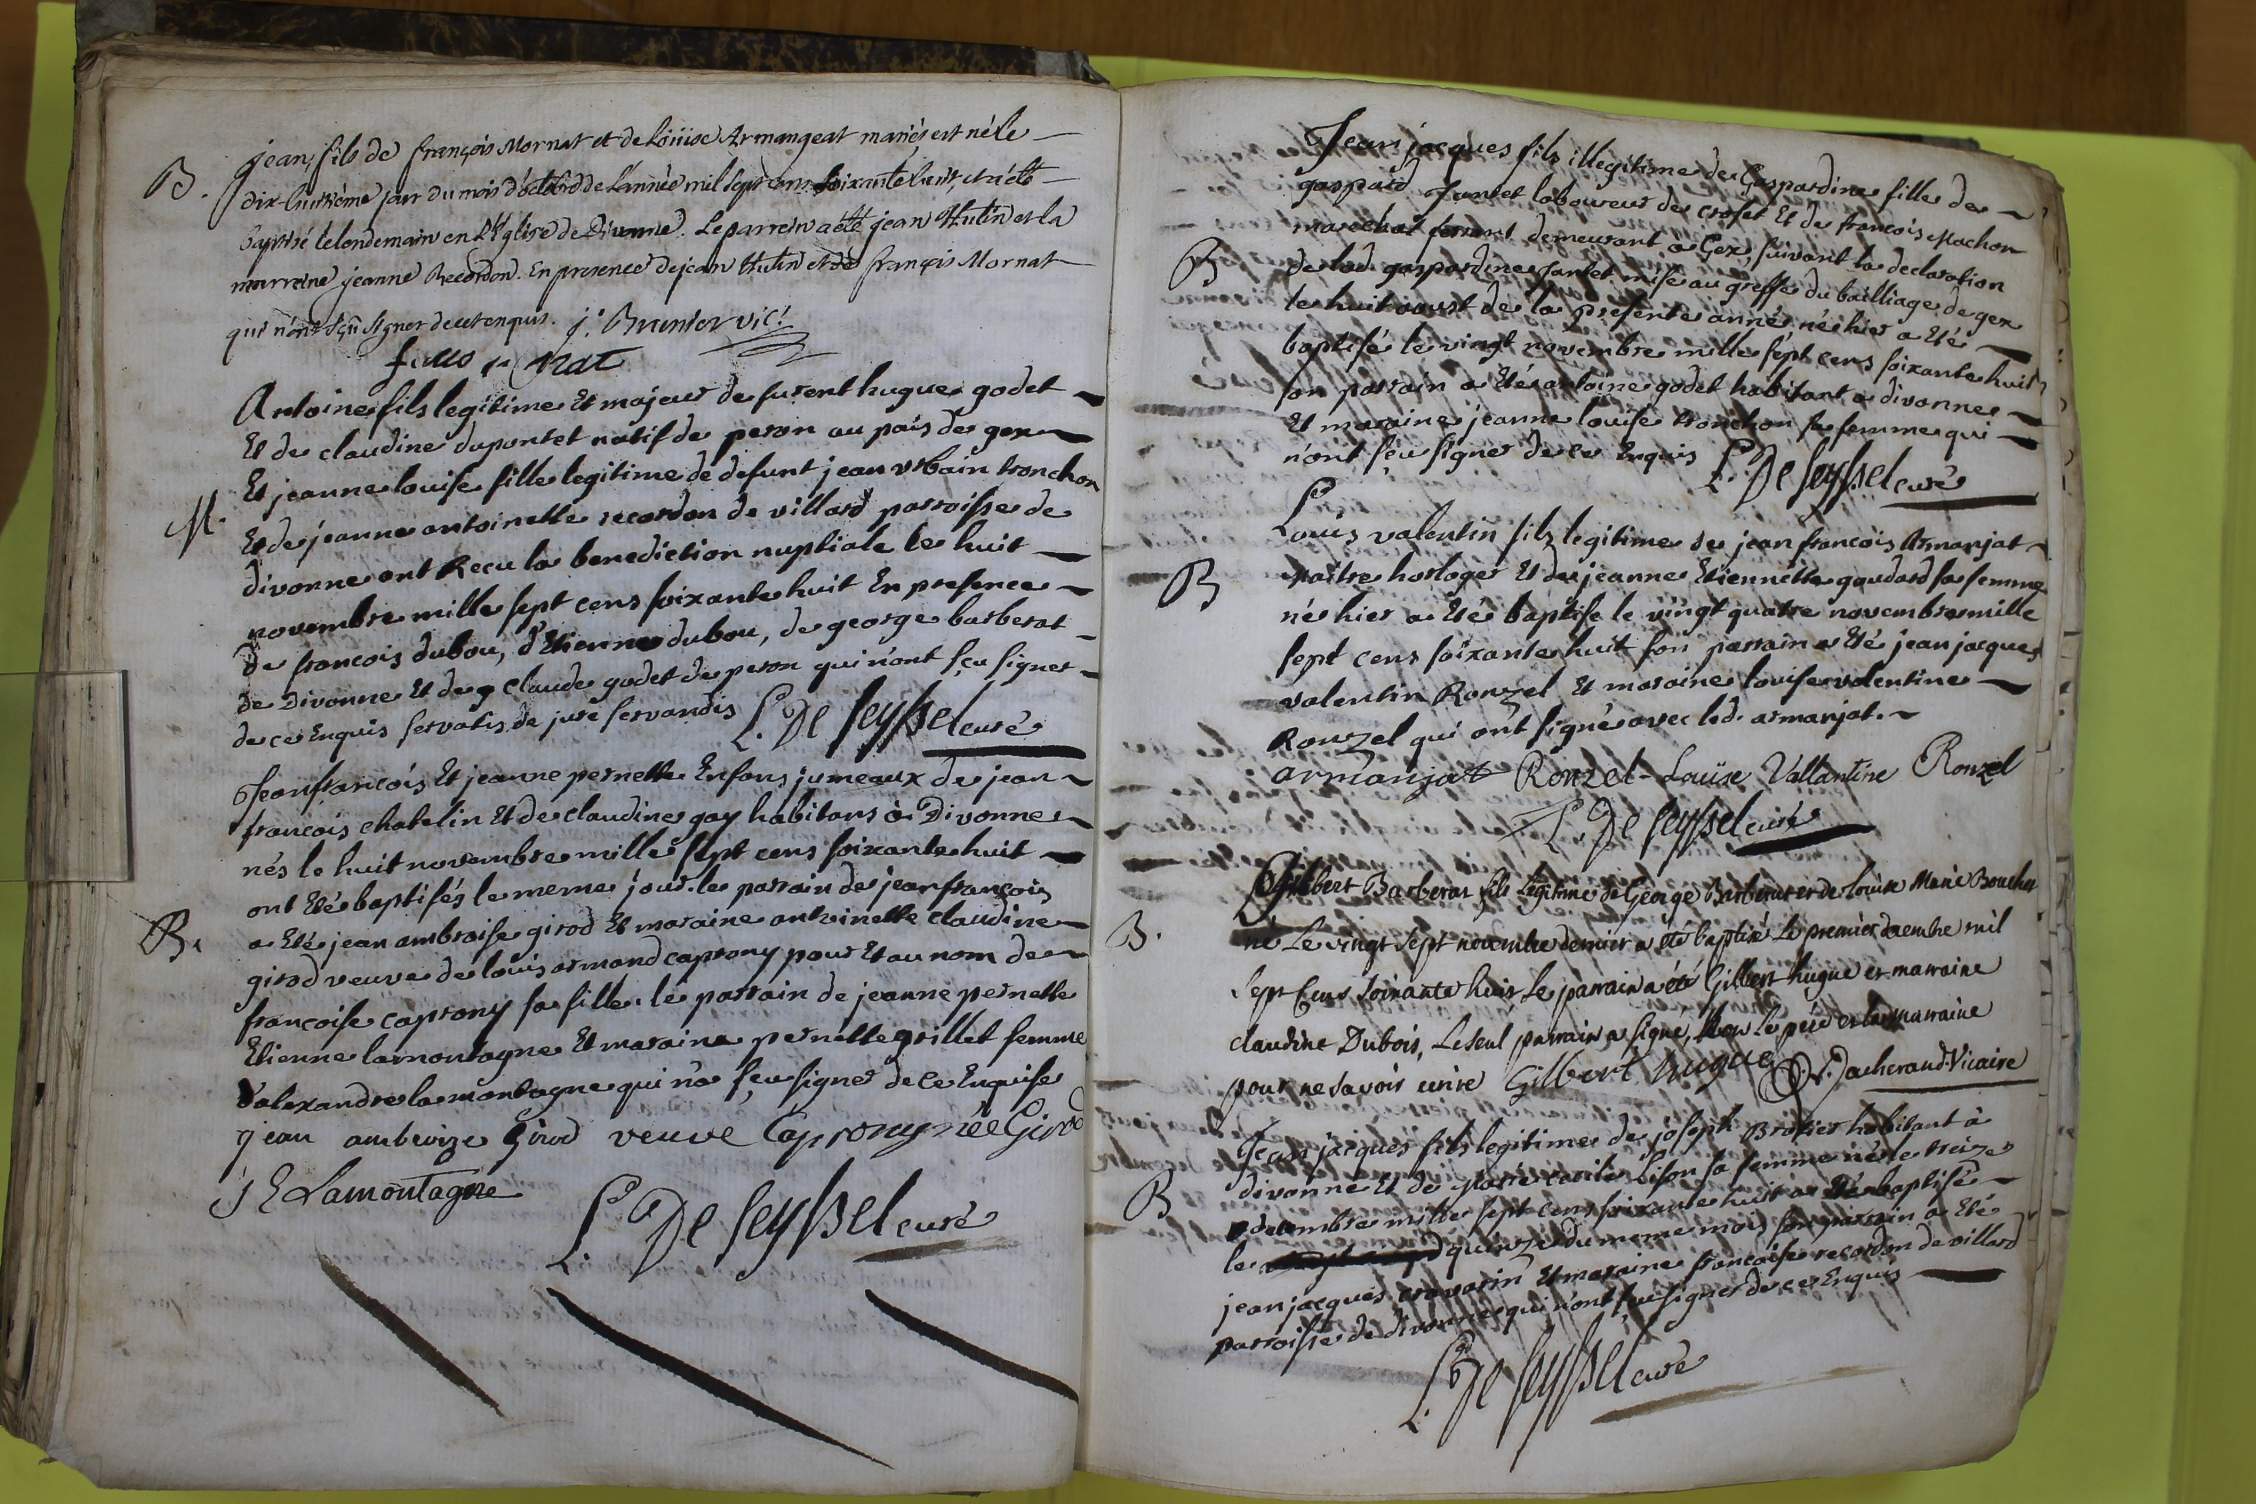 jean, fils de françois Mornat et de Loüise Armangeat mariés est né le
B. dix-huitième jour du mois d'octobre de L'année mil sept cens soixante huit, et a été
baptisé le lendemain en L'Eglise de Divonne. Le parrein a été jean Hutin et la
marreine jeanne Recordon. En presence de jean Hutin et de françois Mornat
qui n'ont sçu signer de ce enquis. j. Brunier vic.
Antoine fils legitime Et majeur de furent hugue godet
Et de claudine dupontet natif de peron au païs de gex
Et jeanne louise fille legitime de defunt jean urbain tronchon
M. Et de jeanne antoinette recordon de villard parroisse de
divonne ont Recu la benediction nuptiale le huit
novembre mille sept cens soixante huit En presence
de francois dubou, d'Etienne dubou, de george barberat
de Divonne Et de claude godet de peron qui n'ont sçu signer
de ce Enquis servatis de jure servandis L. De Seyssel curé
Jean françois Et jeanne pernette Enfans jumeaux de jean
francois chatelin Et de claudine gay habitans à Divonne
nés le huit novembre mille sept cens soixante huit
ont Eté baptisés le meme jour. le parrain de jean françois
B. a Eté jean ambroise girod Et maraine antoinette claudine
girod veuve de louis armand caprony pour Et au nom de
francoise caprony sa fille. le parrain de jeanne pernette
Etienne lamontagne Et maraine pernette grillet femme
d'alexandre lamontagne qui n'a sçeu signer de ce Enquise
jean ambroize Girod veuve Caprony née Girod
J E Lamontagne
L. De Seyssel curé
Jean jacques fils illegitime de Gaspardine fille de
gaspard Juntet laboureur de croset Et de francois Machon
marechal ferrant demeurant a Gex, suivant la declaration
B de lad. gaspardine Juntet mise au greffe du bailliage de gex
le huit aoust de la presente année né hier a Eté
baptisé le vingt novembre mille sept cens soixante huit
son parrain a Eté antoine godet habitant a divonne
Et maraine jeanne louise tronchon sa femme qui
n'ont sçeu signer de ce Enquis L. De Seyssel curé
Louis valentin fils legitime de jean francois Armanjat
B maitre horloger Et de jeanne Etiennette goudard sa femme
né hier a Eté baptisé le vingt quatre novembre mille
sept cens soixante huit son parrain a Eté jean jacques
valentin Ronzel Et maraine louise valentine
Ronzel qui ont signé avec led. armanjat.
armanjat Ronzel Loüise Vallantine Ronzel
L. De Seyssel curé
Gilbert Barberat fils Légitime de George Barberat et de Louise Marie Bouchet
B. né Le vingt sept novembre dernier a été baptisé Le premier decembre mil
Sept Cens Soixante huit Le parrain a été Gilbert hugue et marraine
claudine Dubois, Le seul parrain a signé, non Le père et la marraine
pour ne savoir ecrire Gilbert hugue Vicaire
Jean jacques fils legitime de joseph Brosier habitant à
divonne Et de Marie sa femme né le treize
B decembre mille sept cens soixante huit a Eté baptisé
le quinze du meme mois son parrain a Eté
jean jacques Et maraine francoise recordon de villard
parroisse de divonne qui n'ont sçeu signer de ce Enquis
L. De Seyssel curé